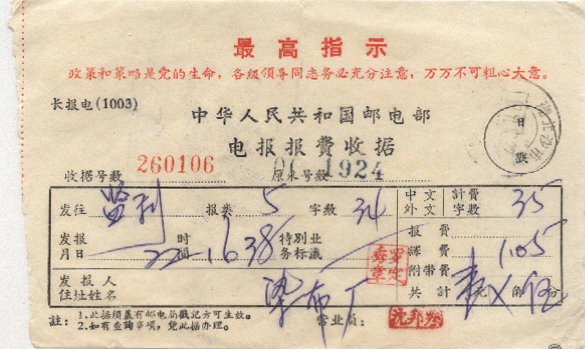 最高指示
政策和策略是党的生命，各级领导同志务必充分注意，万万不可粗心大意。
长报电(1003)
中华人民共和国邮电部
电报报费收据
收据号数 260106 原来号数 1924
发往 监利 报类 5 字数 34 中文外文 计费字数 35
发报月日 22 时间 1638 特别业务标识 报费
译费 1.05
附带费
发报人住址姓名 染布厂 共计 元 角 分
註：1.此据须盖有邮电局戳记方可生效。
2.如有查询事项，凭此据办理。 营业员：
日戳